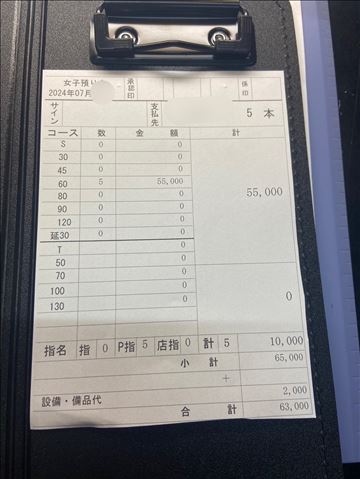 女子預り 承認印 係印
2024年07月
サイン 支払先 5 本
コース 数 金 額 計
S 0 0
30 0 0
45 0 0
60 5 55,000 55,000
80 0 0
90 0 0
120 0 0
延30 0 0
T 0
50 0
70 0
100 0 0
130 0
指名 指 0 P指 5 店指 0 計 5 10,000
小 計 65,000
+
設備・備品代 2,000
合 計 63,000